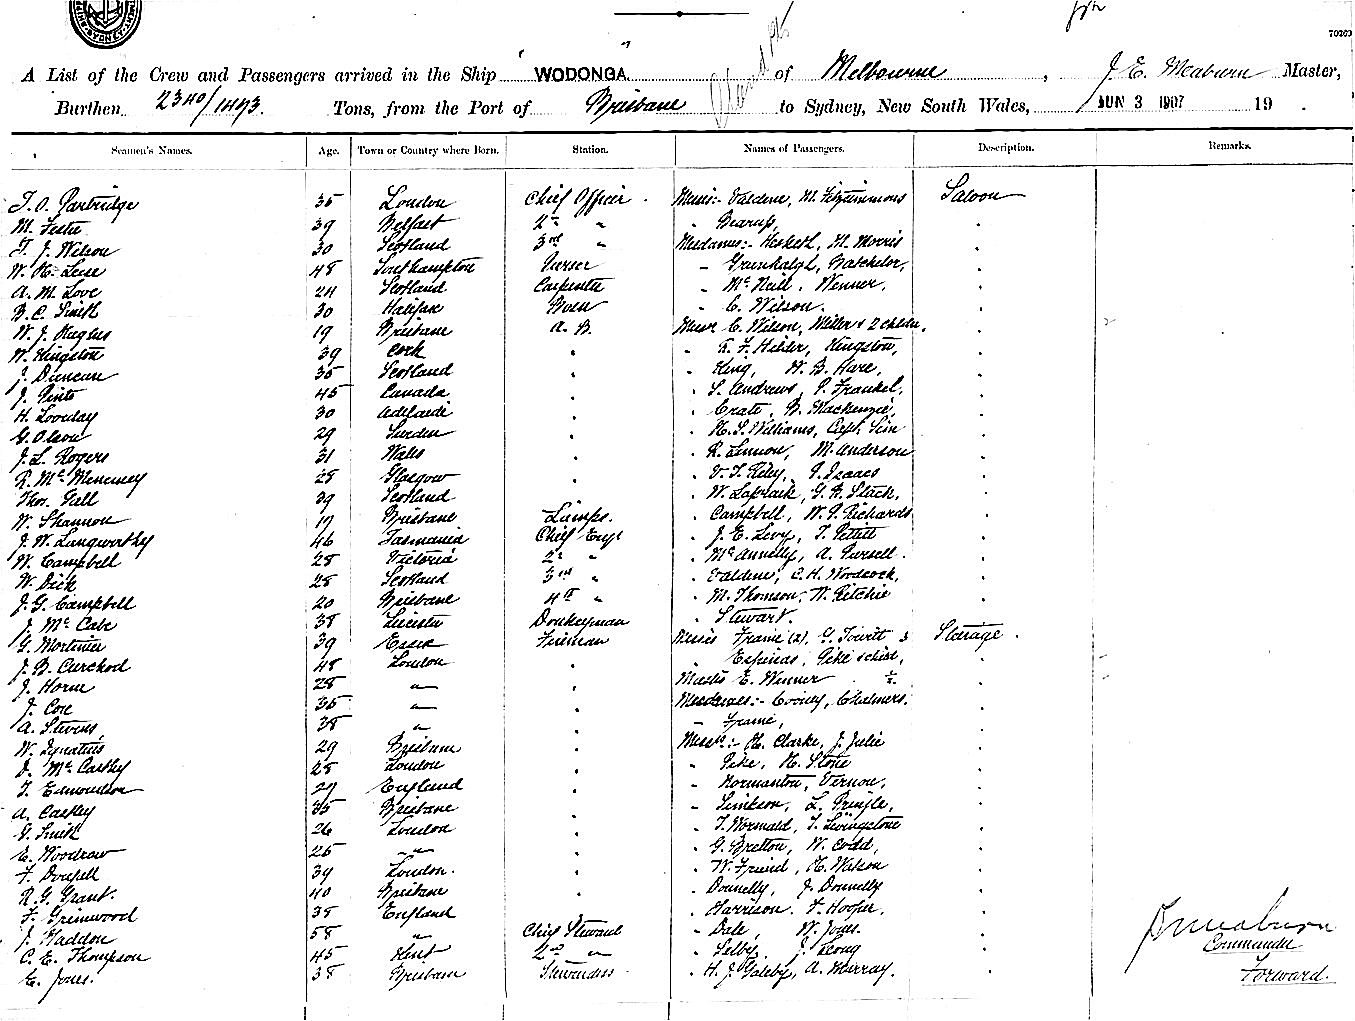 70263
A List of the Crew and Passengers arrived in the Ship WODONGA of Melbourne, J. E. Meaburn Master,
Burthen 2340/1493 Tons, from the Port of Brisbane to Sydney, New South Wales, JUN 3 1907 19 .
Seamen's Names. Age. Town or Country where Born. Station. Names of Passengers. Description. Remarks.
T. O. Partridge 35 London Chief Officer . Messrs:- Valdene, M. Fitzsimmons Saloon
M. 39 Belfast 2nd " " Bearup, "
T. J. Wilson 30 Scotland 3rd " Mesdames:- Hesketh, H. Morris "
W. H. 48 Southampton Purser " Grunhalgh, Batchelor, "
A. M. Love 24 Scotland Carpenter " McNeill, Wenner, "
B. C. Smith 30 Halifax Bosn " C. Wilson. "
W. J. Hughes 19 Brisbane A. B. Messrs C. Wilson, Miller & 2 childn, "
W. Kingston 39 Cork " " R. F. Helder, Kingston, "
J. Duncan 35 Scotland " " King, H. B. Hare, "
J. Pinto 45 Canada " " S. Andrews, P. Frankel, "
H. Loveday 30 Adelaide " " Crate, B. Mackenzie, "
G. Olson 29 Sweden " " H. S. Williams, Capt. Sim "
J. L. Rogers 31 Wales " " R. Lennon, M. Anderson "
R. McMenemey 28 Glasgow " " V. T. Riley, P. Isaacs "
Thos. Gall 39 Scotland " " W. Lapraik, G. A. Stack, "
W. Shannon 19 Brisbane Lamps. " Campbell, W. P. Richards "
J. W. Langworthy 46 Tasmania Chief Engr " J. E. Levy, T. Pettitt "
W. Campbell 28 Victoria 2nd " " McAnnelly, A. Pursell. "
W. Dick 28 Scotland 3rd " " Valdene, C. H. Woodcock, "
J. G. Campbell 20 Brisbane 4th " " M. Thomson, W. Ritchie "
J. McCabe 38 Leicester Donkeyman " Stewart. "
G. Mortimer 39 Essex Fireman Messrs Frame (2), G. Towitt & Steerage .
J. B. Curchod 48 London " " Espinas, Pike & child, "
J. Horne 28 " " E. Wenner ½ "
J. Coe 35 " " Mesdames:- Cooney, Chalmers. "
A. Stevens, 38 " " " Frame, "
W. Ignatius 29 Brisbane " Messrs:- H. Clarke, J. Julie "
D. McCaskey 28 London " " Pike, H. Stone "
T. Edmondson 29 England " " Normanton, Vernon, "
A. Caskey 35 Brisbane " " Simkson, L. Pringle, "
G. Smith 26 London " " T. Wormald, T. Livingstone "
E. Woodrow 25 " " " G. Bretton, W. Codd, "
F. 39 London. " " W. Friend, H. Watson "
R. G. Grant. 40 Brisbane " " Donnelly, J. Donnelly "
F. Grimwood 35 England " " Harrison. F. Hooper, "
J. Haddon 58 " Chief Steward " Dale, W. Jones. "
C. E. Thompson 45 Kent 2nd " " Selby, J. Leong "
E. Jones. 38 Brisbane Stewardess " H. J. Galeby, A. Murray. "
J. E. Meaburn
Commander
Forward.